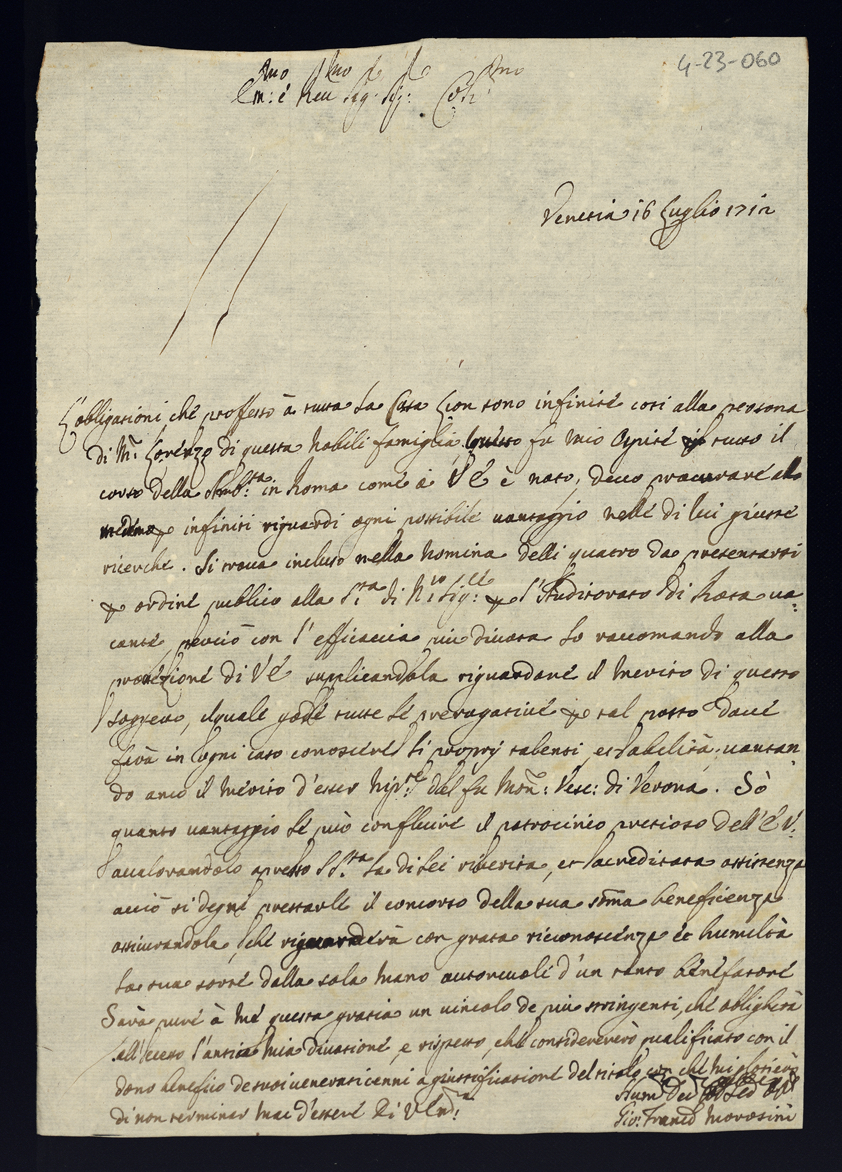 4-23-060
Em:mo é Reu:mo Sig:r Sig:r Col:mo
Venetia 16 Luglio 1712
L'obligationi, ché professo à tutta la Casa Lion sono infinité cosi alla persona
di M.r Lorenzo di questa nobili famiglia. Questo fu mio Ospité tutto il
corso della Amb:ta in Roma comé à VE è noto, deuo procurare allo
infiniti riguardi ogni possibilé uantaggio nellé di lui giusté
ricerché. Si troua incluso nella nomina delli quatro da presentarsi
p ordiné publico alla S.ta di N.ro Sig.re p l'Auditorato di Rota ua=
canté perciò con l'efficaccia piu diuota lo raccomando alla
protezioné di VE supplicandola riguardaré il merito di questo
soggetto, il qualé godé tutte lé prerogatiué p tal posto doué
farà in ogni caso conosceré li proprÿ talenti, et habilità, uantan
do anco il mérito d'esser Nip:te del fu Mon:r Vesc: di Verona. Sò
quanto uantaggio lé può confluiré il patrocinio pretioso dell'E V:
aualorandolo apresso S S.ta la di lei riuerita, et acreditata assistenza
acciò si degni prestarlé il concorso della sua soma beneficenza
assicurandola, ché riguarderà con grata riconoscénza et humiltà
la sua sorté dalla sola mano autoreuolé d'un tanto bénéfatoré
Sarà puré à mé questa gratia un uincolo de piu stringenti, ché obligherà
all'eccesso l'antica mia diuotioné e rispetto, ché considererò qualificato con il
dono benefico de suoi uenerati cenni a giustificationé del titolo con ché mi glorierò
di non terminar mai d'esseré Di V Em:a
Hum: Deu:
Gio: Franc:o Morosini